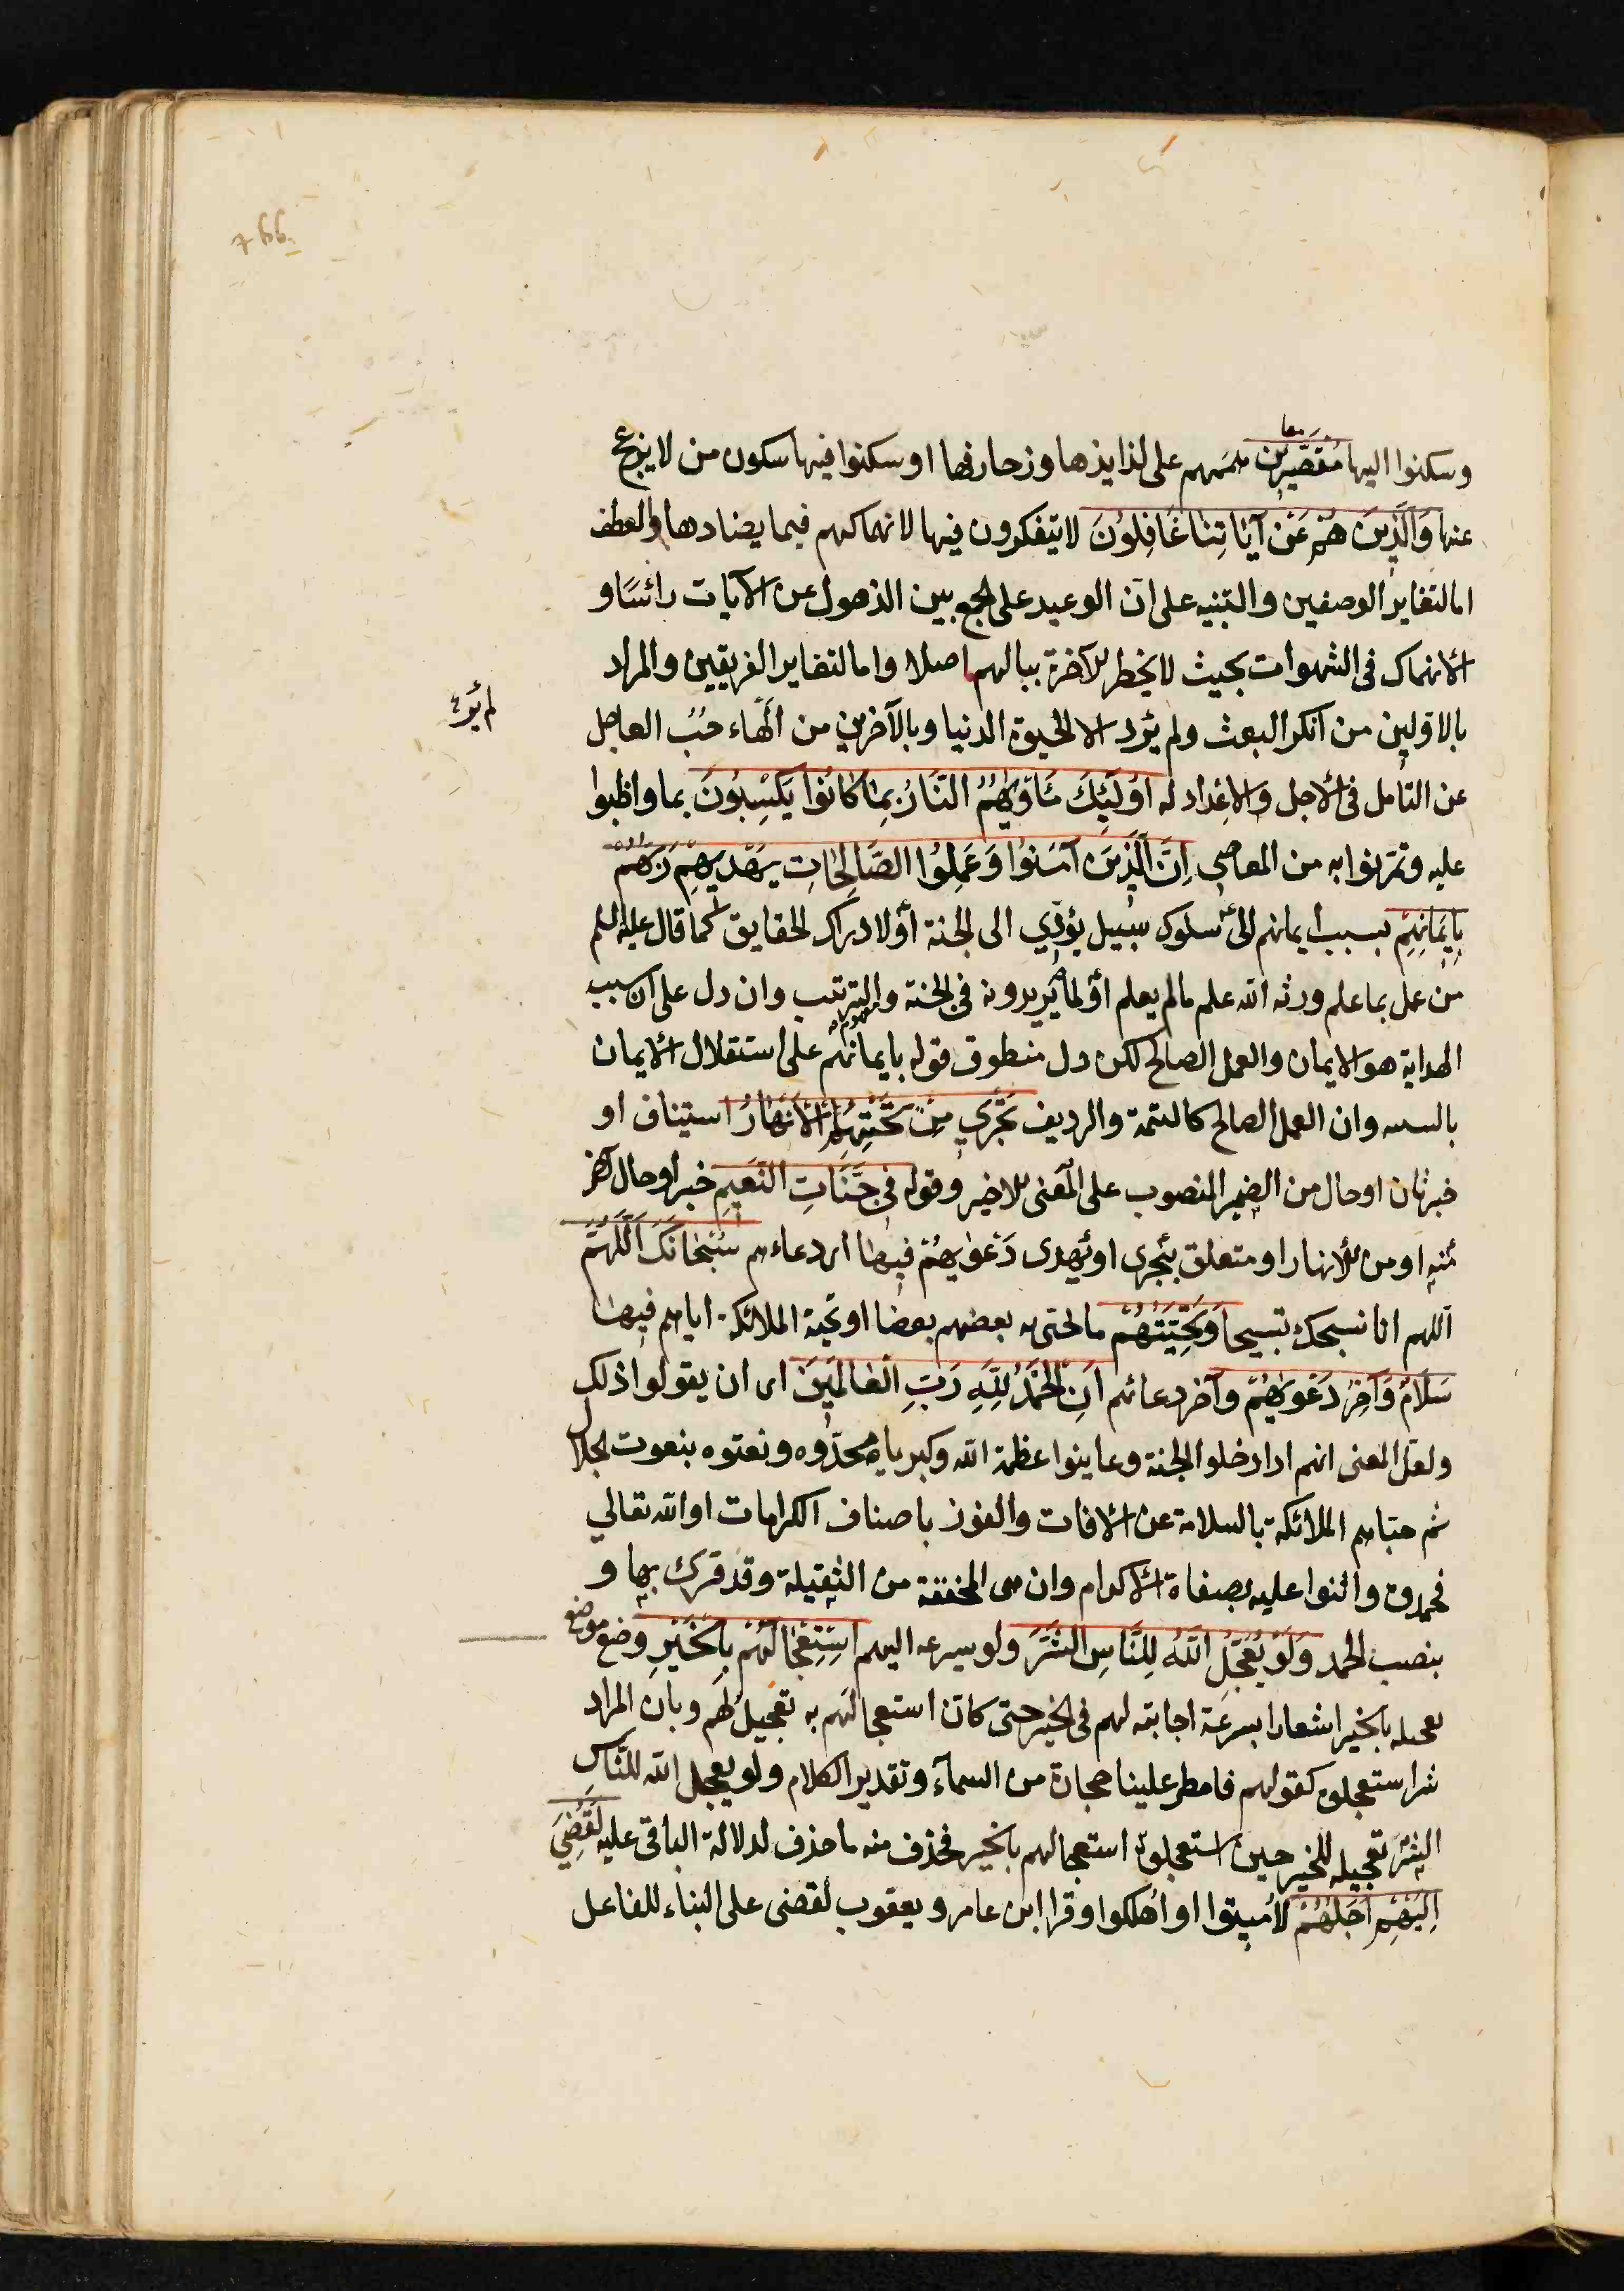 وسكنوا اليها مُقَصِّرين هممهم على لذايذها وزخارفها او سكنوا فيها سكون من لا يزعج
عنها وَالَّذِينَ هُمْ عَنْ آيَاتِنَا غَافِلُونَ لا يتفكرون فيها لانهماكهم فيما يضادها والعطف
اما لتغاير الوصفين والتنبيه على ان الوعيد على الجمع بين الذهول عن الآيات رأسًا و
الانهماك فى الشهوات بحيث لا يخطر الآخرة ببالهم اصلا واما لتغاير الفريقين والمراد
بالاوّلين من انكر البعث ولم يُرِد الا الحيوة الدنيا وبالآخرين من ألهاه حبُّ العاجل
لم يُرِد
عن التأمل فى الآجل والاعداد له أُولَئِكَ مَأْوَيهُمُ النَّارُ بِمَا كَانُوا يَكْسِبُونَ بما واظبوا
عليه وتمرّنوا به من المعاصى إِنَّ الَّذِينَ آمَنُوا وَعَمِلُوا الصَّالِحَاتِ يَهْدِيهِمْ رَبُّهُمْ
بِإِيمَانِهِمْ بسبب ايمانهم الى سلوك سبيل يؤدّي الى الجنة أو لادراك الحقايق كما قال عليه السلم
من عمل بما علم ورثه الله علم ما لم يعلم أو لما يريدونه فى الجنة والترتيب وان دل على ان سبب
مفهوم
الهداية هو الايمان والعمل الصالح لكن دل منطوق قوله بايمانهم على استقلال الايمان
بالسببية وان العمل الصالح كالتتمة والرديف تَجْرِي مِنْ تَحْتِهِمُ الْأَنْهَارُ استيناف او
خبر ثان او حال من الضمير المنصوب على المعنى الاخير وقوله فِي جَنَّاتِ النَّعِيمِ خبر او حال آخر
منه او من الأنهار او متعلق بتجرى او يهدى دَعْوَيهُمْ فِيهَا اى دعاءهم سُبْحَانَكَ اللَّهُمَّ
اللهم انا نسبحك تسبيحا وَتَحِيَّتُهُمْ ما يحيّى به بعضهم بعضا او تحية الملائكة اياهم فِيهَا
سَلَامٌ وَآخِرُ دَعْوَيهُمْ وآخر دعائهم أَنِ الْحَمْدُ لِلَّهِ رَبِّ الْعَالَمِينَ اى ان يقولوا ذلك
ولعل المعنى انهم اذا دخلوا الجنة وعاينوا عظمة الله وكبرياءه مجدّوه ونعتوه بنعوت الجلال
ثم حيّاهم الملائكة بالسلامة عن الآفات والفوز باصناف الكرامات او الله تعالي
فحمدوه واثنوا عليه بصفاة الاكرام وان هى المخففة من الثقيلة وقد قرئ بها و
بنصب الحمد وَلَوْ يُعَجِّلُ اللَّهُ لِلنَّاسِ الشَّرَّ ولو يسرعه اليهم اسْتِعْجَالَهُمْ بِالْخَيْرِ وضع موضع
تعجيله بالخير اشعارا بسرعة اجابته لهم فى الخير حتى كانّ استعجالهم به تعجيل لهم وبان المراد
شر استعجلوه كقولهم فامطر علينا حجارة من السمآء وتقدير الكلام ولو يعجل الله للنّاس
الشرّ تعجيله للخير حين استعجلوه استعجالهم بالخير فحذف منه ما حذف لدلالة الباقى عليه لَقُضِيَ
إِلَيْهِمْ أَجَلُهُمْ لأُميتوا او أُهلكوا وقرا ابن عامر ويعقوب لقضى على البناء للفاعل